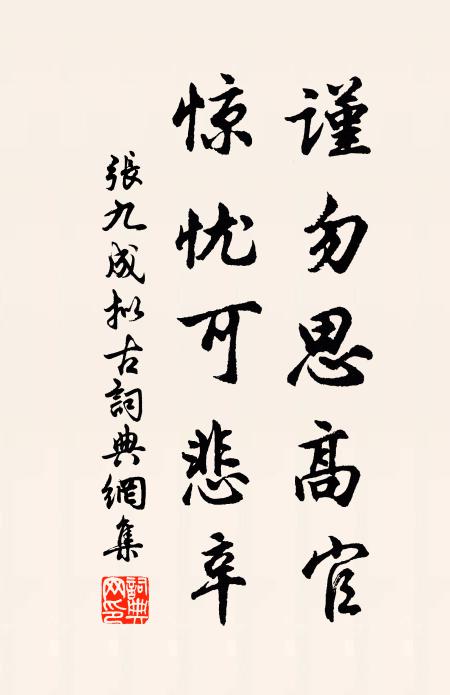 謹勿思高官
惊忧可悲辛
張九成拟古詞典網集
詞典网印